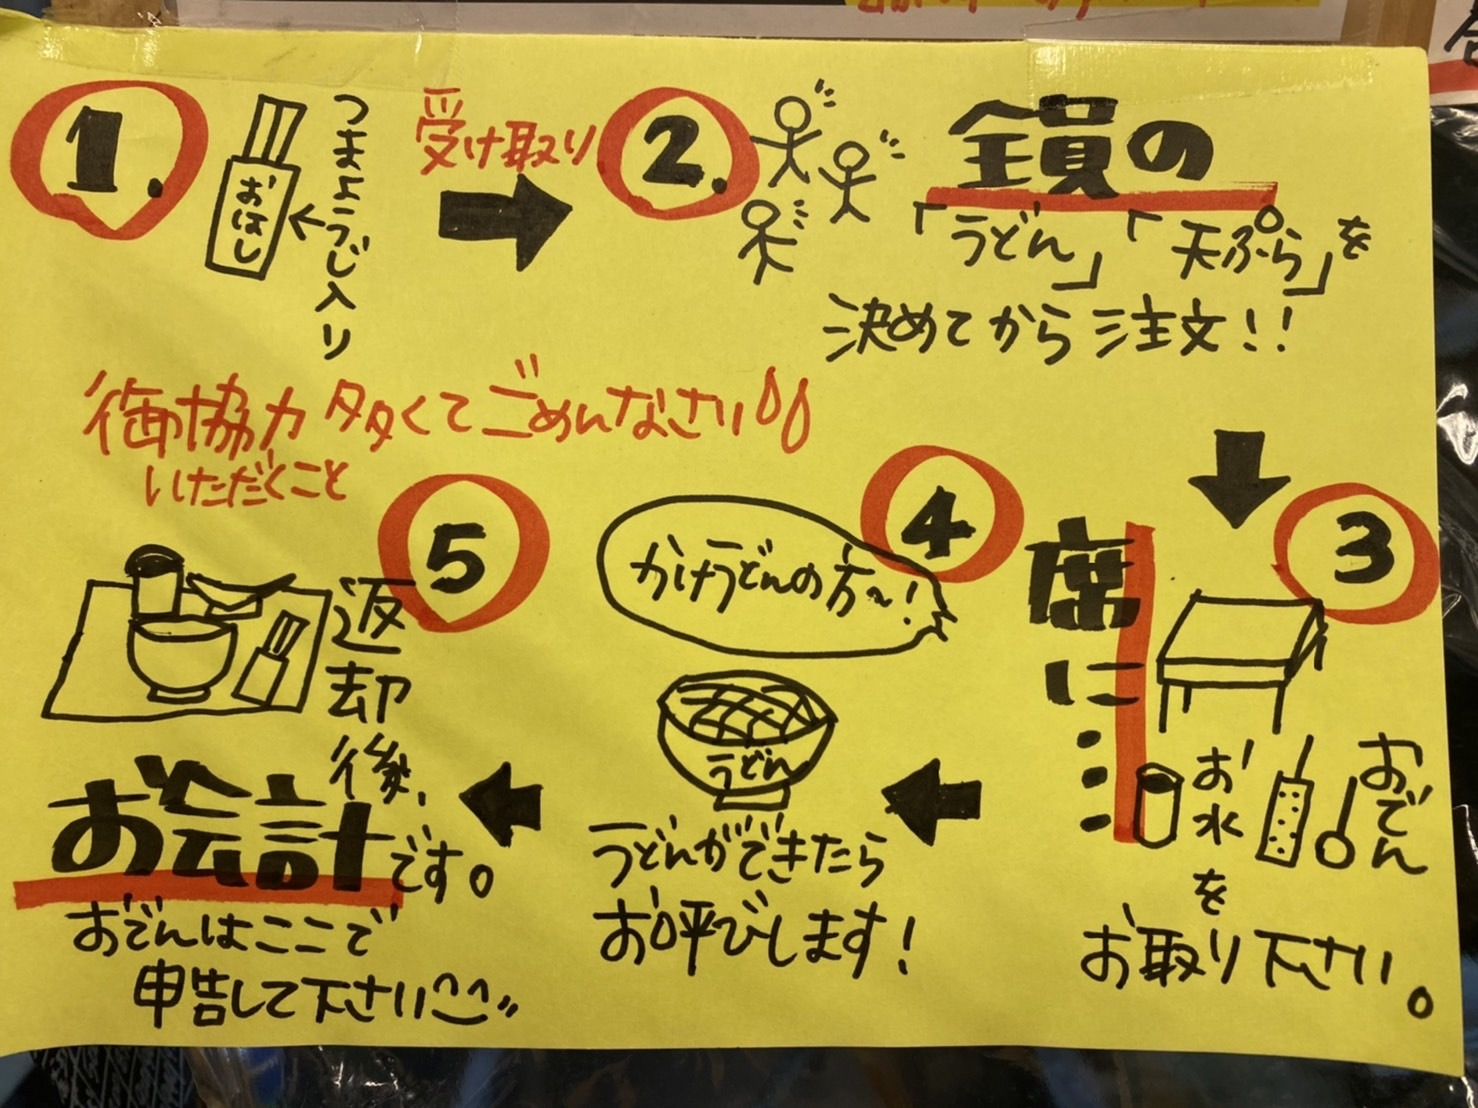 1.
おはし
つまようじ入り
受け取り
2.
全員の
「うどん」「天ぷら」を
決めてから注文!!
御協力多くてごめんなさい
いただくこと
3
席に…
お水
おでん
を
お取り下さい。
4
かけうどんの方〜!
うどん
うどんができたら
お呼びします!
5
返却後、
お会計です。
おでんはここで
申告して下さい^^